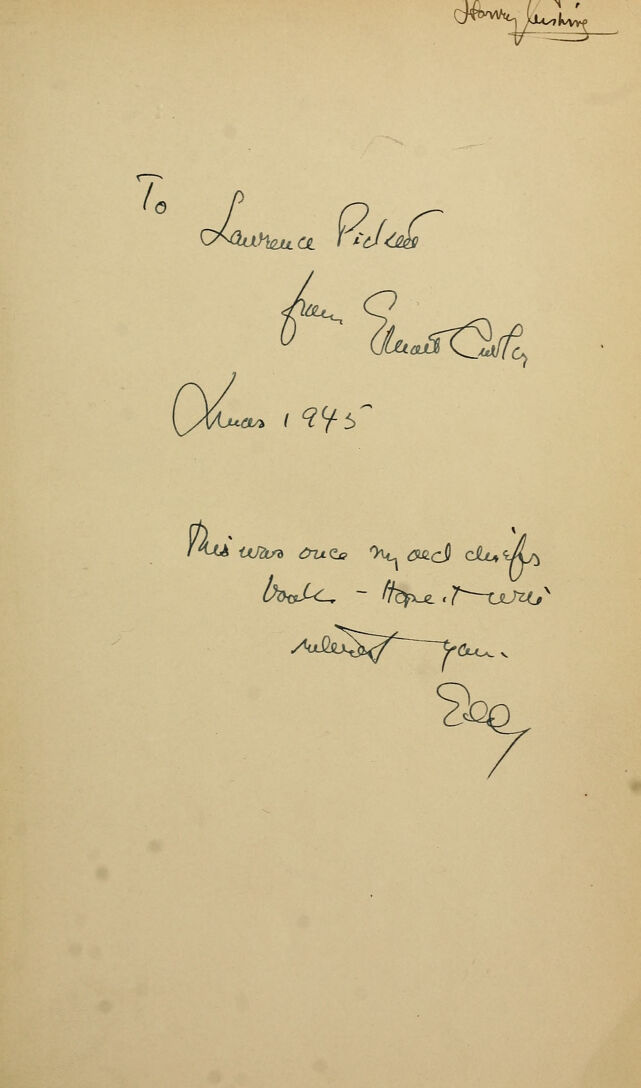 Harvey Cushing
To
Lawrence Pickett
from Elliott Cutler
Xmas 1945
This was once my old chief's
book – Hope it will
interest you.